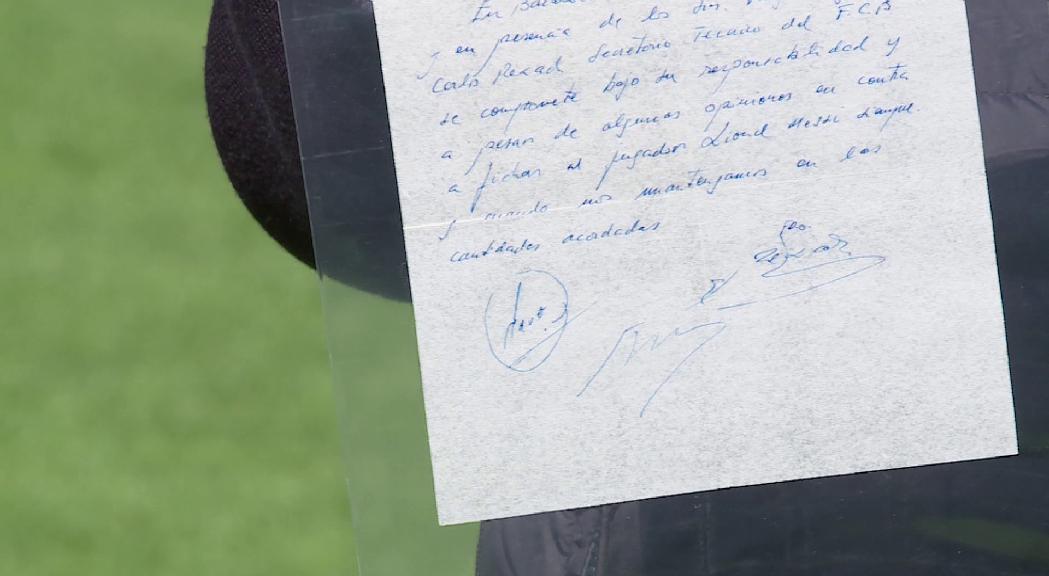 En Barcelo
y en presencia de los Srs.
Carlos Rexach Secretario Técnico del F.C.B
se compromete bajo su responsabilidad y
a pesar de algunas opiniones en contra
a fichar al jugador Lionel Messi siempre
y cuando nos mantengamos en las
cantidades acordadas